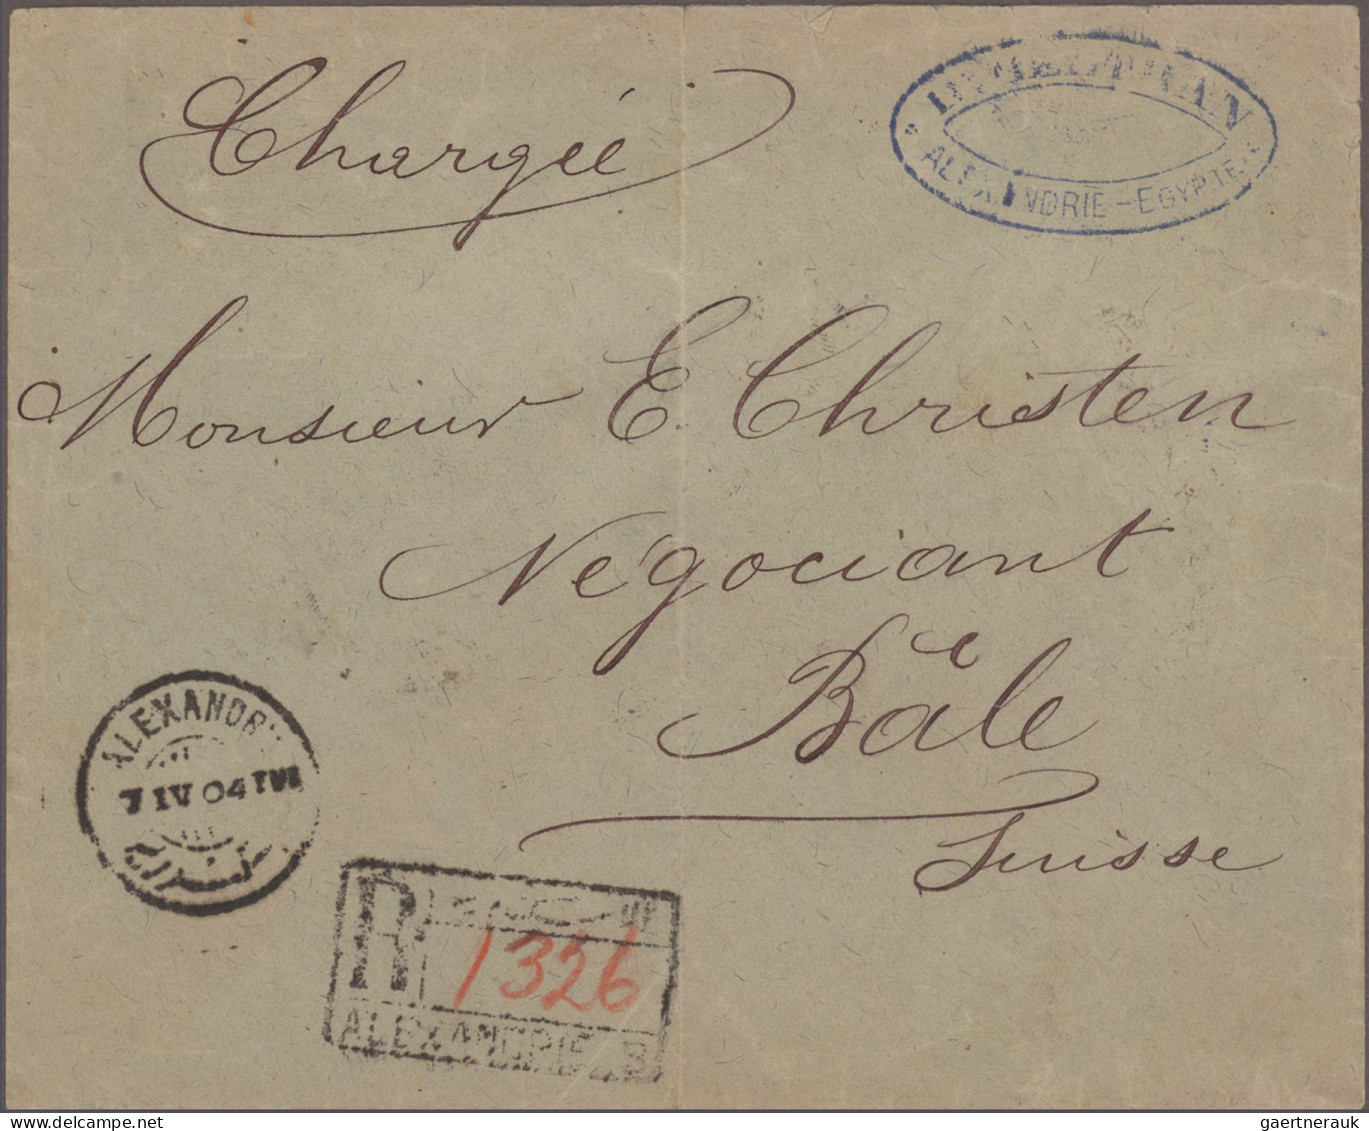 Chargée
ALEXANDRIE-EGYPTE
Monsieur E. Christen
Négociant
Bâle
Suisse
ALEXANDRI
7 IV 04
R
1326
ALEXANDRIE
gaertnerauk